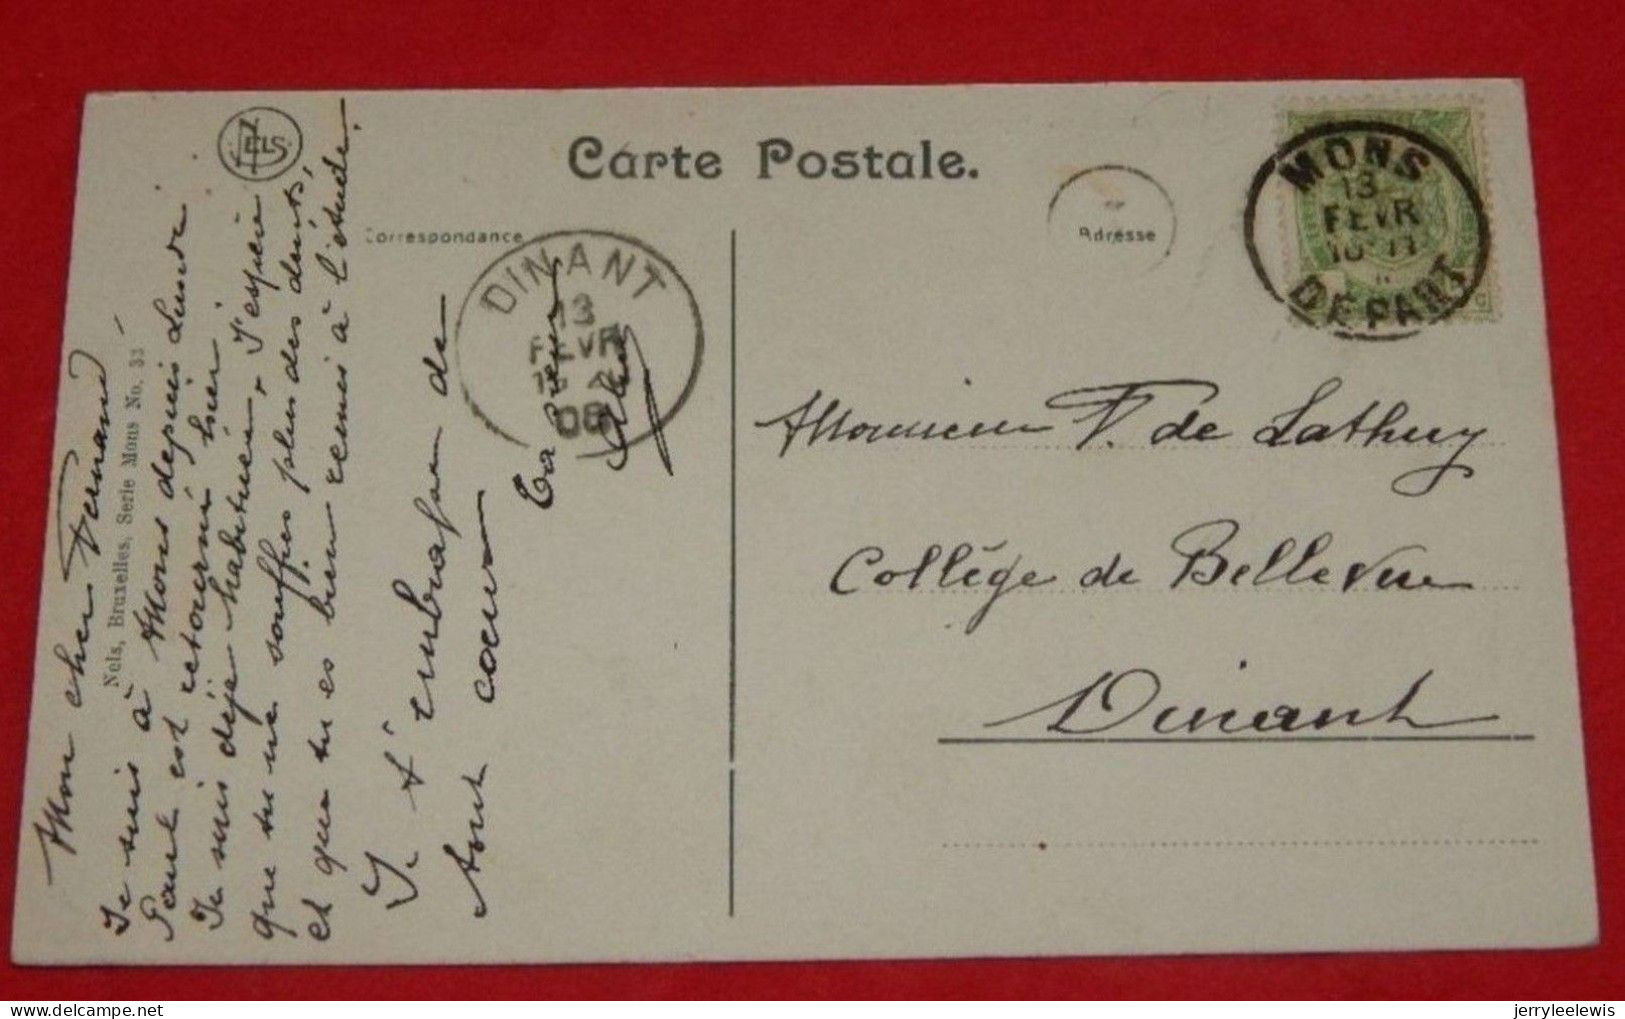 Carte Postale.
Correspondance
Adresse
NELS
Nels, Bruxelles, Serie Mons No. 33
MONS
13
FEVR
10-11
DEPART
DINANT
13
FEVR
08
Mon cher Fernand
Je suis à Mons depuis Lundi
Paul est retourné hier
Je suis déjà habituée. J'espère
que tu ne souffres plus des dents,
et que tu es bien remis à l'étude.
Je t'embrasse de
tout cœur
Ta
Monsieur F. de Lathuy
Collège de Bellevue
Dinant
jerryleelewis